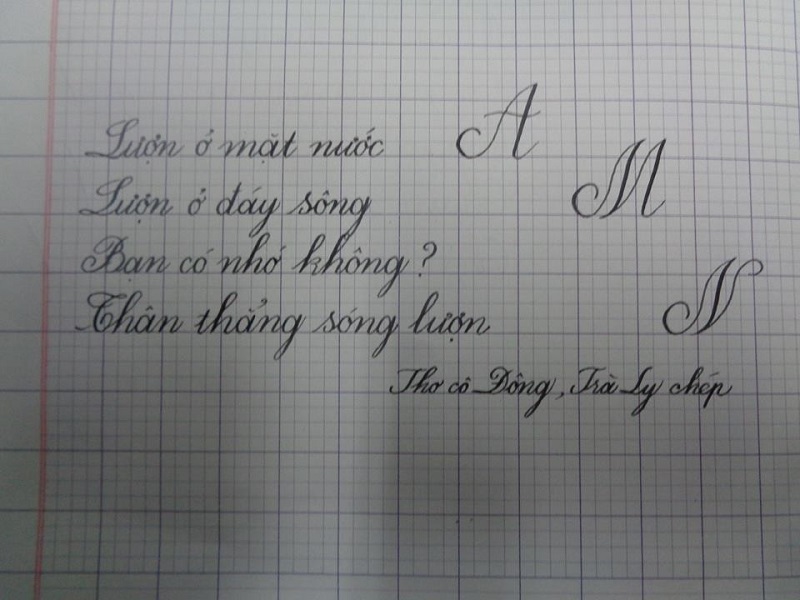 Lượn ở mặt nước
Lượn ở đáy sông
Bạn có nhớ không?
Thân thẳng sóng lượn
Thơ cô Đông, Trà Ly chép
A
M
N